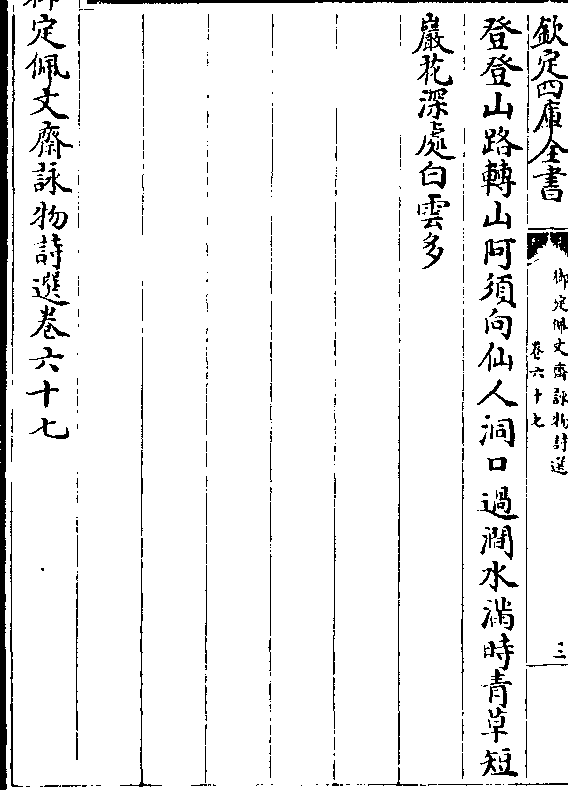 欽定四庫全書
御定佩文齋詠物詩選
卷六十七
三
登登山路轉山阿須向仙人洞口過澗水滿時青草短
巖花深處白雲多
御定佩文齋詠物詩選卷六十七